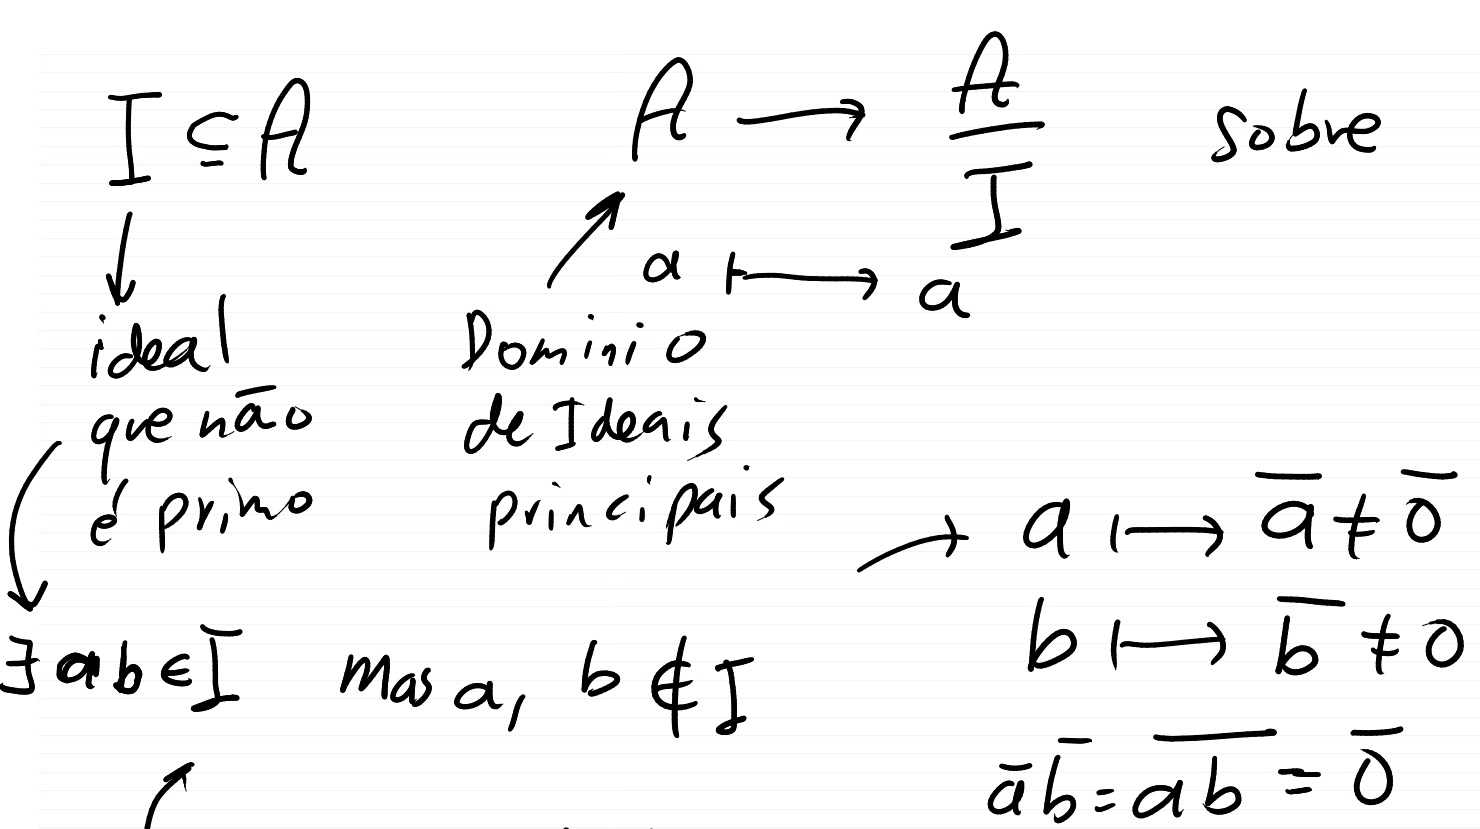 I ⊆ A
A → A/I sobre
a ↦ a
ideal
que não
é primo
Dominio
de Ideais
principais
a ↦ a̅ ≠ 0̅
b ↦ b̅ ≠ 0
∃ ab ∈ I mas a, b ∉ I
a̅ b̅ = a̅b̅ = 0̅